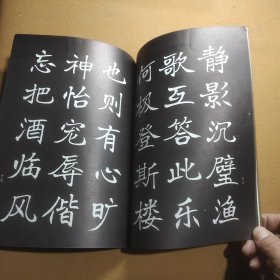 静影沉璧渔
歌互答此乐
何极登斯楼
也则有心旷
神怡宠辱偕
忘把酒临风